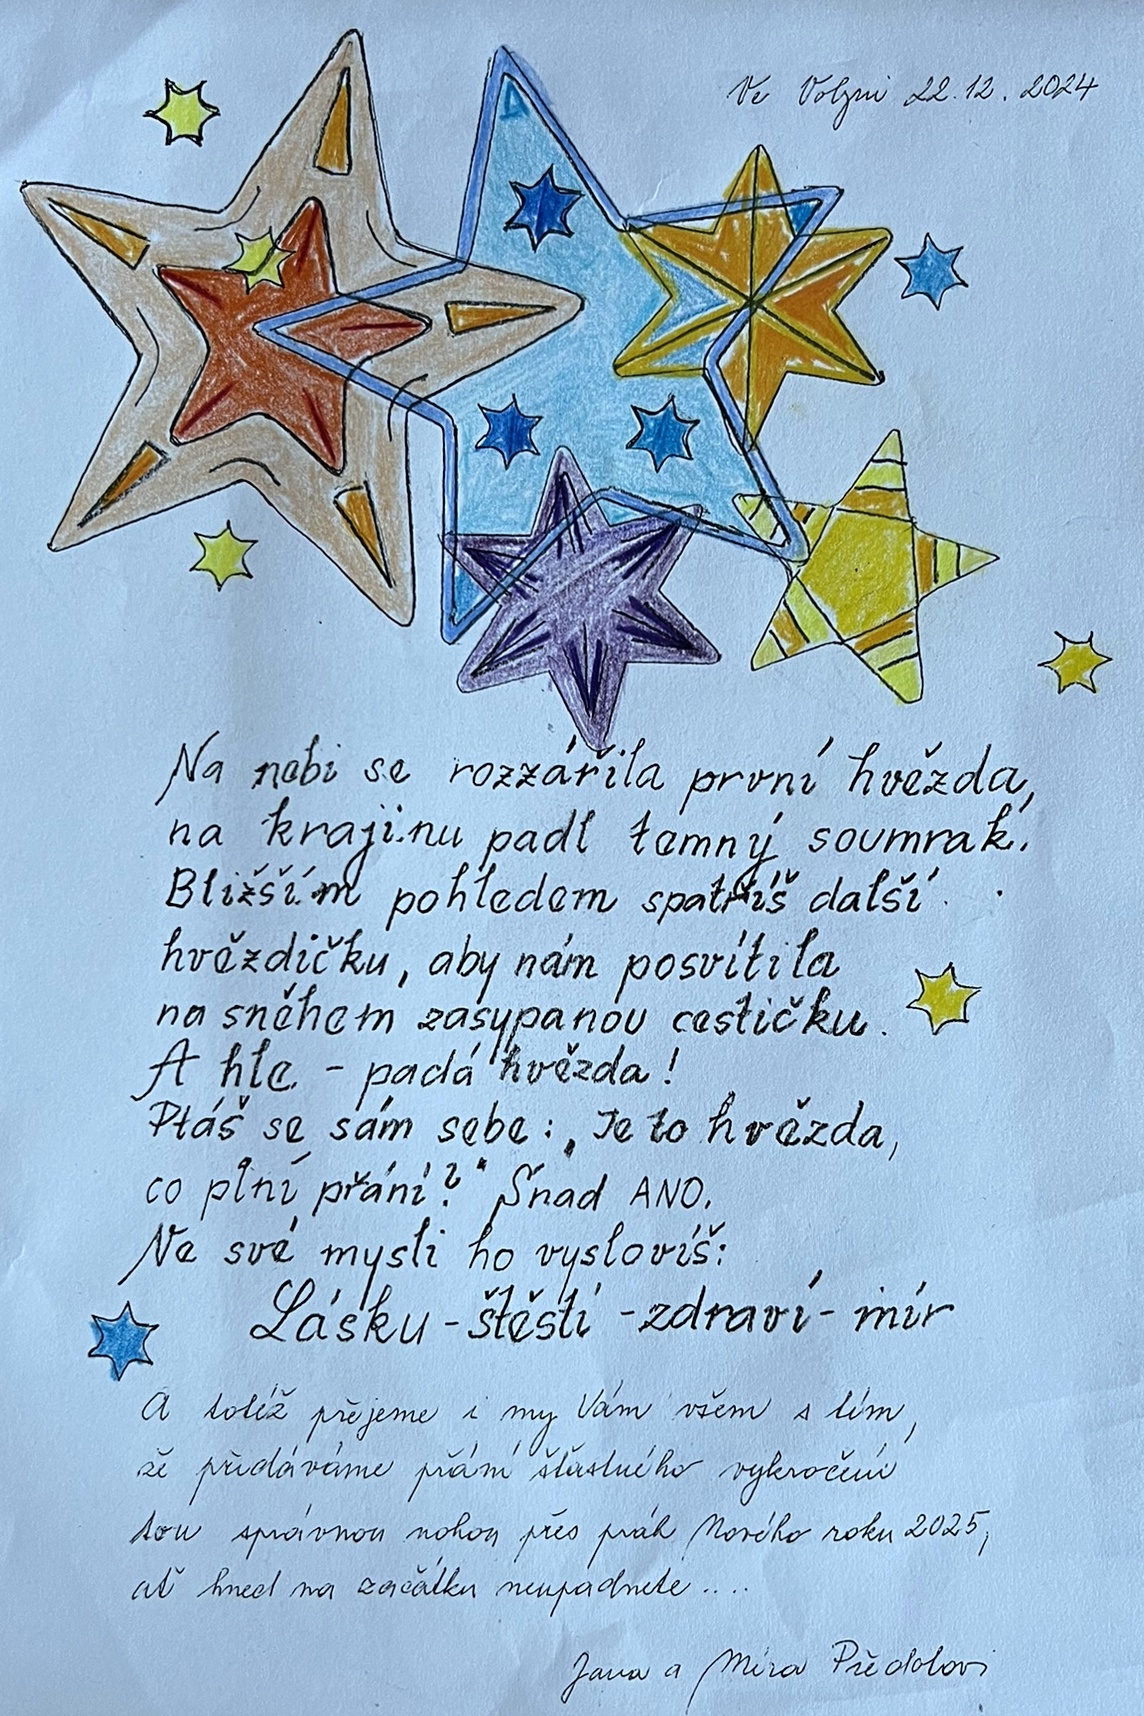 Ve Volyni 22.12.2024
Na nebi se rozzářila první hvězda,
na krajinu padl temný soumrak.
Bližším pohledem spatříš další
hvězdičku, aby nám posvítila
na sněhem zasypanou cestičku.
A hle - padá hvězda!
Ptáš se sám sebe: „Je to hvězda,
co plní přání?" Snad ANO.
Ve své mysli ho vyslovíš:
Lásku - štěstí - zdraví - mír
A totéž přejeme i my Vám všem s tím,
že přidáváme přání šťastného vykročení
tou správnou nohou přes práh Nového roku 2025,
ať hned na začátku neupadnete....
Jana a Míra